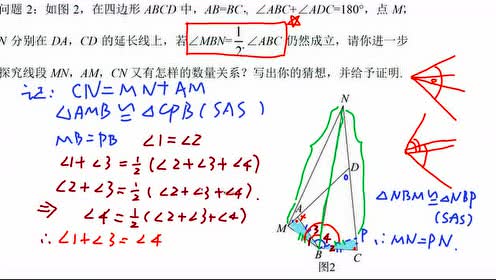 问题 2：如图 2，在四边形 ABCD 中，AB=BC，∠ABC+∠ADC=180°，点 M，
N 分别在 DA，CD 的延长线上，若∠MBN=1/2∠ABC 仍然成立，请你进一步
探究线段 MN，AM，CN 又有怎样的数量关系？写出你的猜想，并给予证明.
证: CN=MN+AM
△AMB≌△CPB(SAS)
MB=PB ∠1=∠2
∠1+∠3=1/2(∠2+∠3+∠4)
∠2+∠3=1/2(∠2+∠3+∠4).
⇒ ∠4=1/2(∠2+∠3+∠4)
∴∠1+∠3=∠4
N
D
A
M
1
3
4
2
P
B
C
图2
△NBM≌△NBP
(SAS)
∴MN=PN.